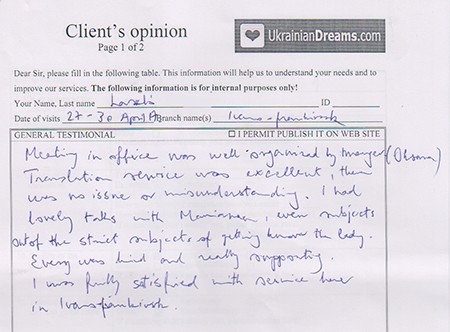 Client's opinion
Page 1 of 2
UkrainianDreams.com
Dear Sir, please fill in the following table. This information will help us to understand your needs and to
improve our services. The following information is for internal purposes only!
Your Name, Last name ID
Date of visits 27 - 30 April Branch name(s)
GENERAL TESTIMONIAL ☐ I PERMIT PUBLISH IT ON WEB SITE
Meeting in office was well organized by (Oksana)
Translation service was excellent, there
was no issue or misunderstanding. I had
lovely talks with , even subjects
out of the strict subjects of getting know the lady.
Every was kind and really supporting.
I was fully satisfied with service here
in